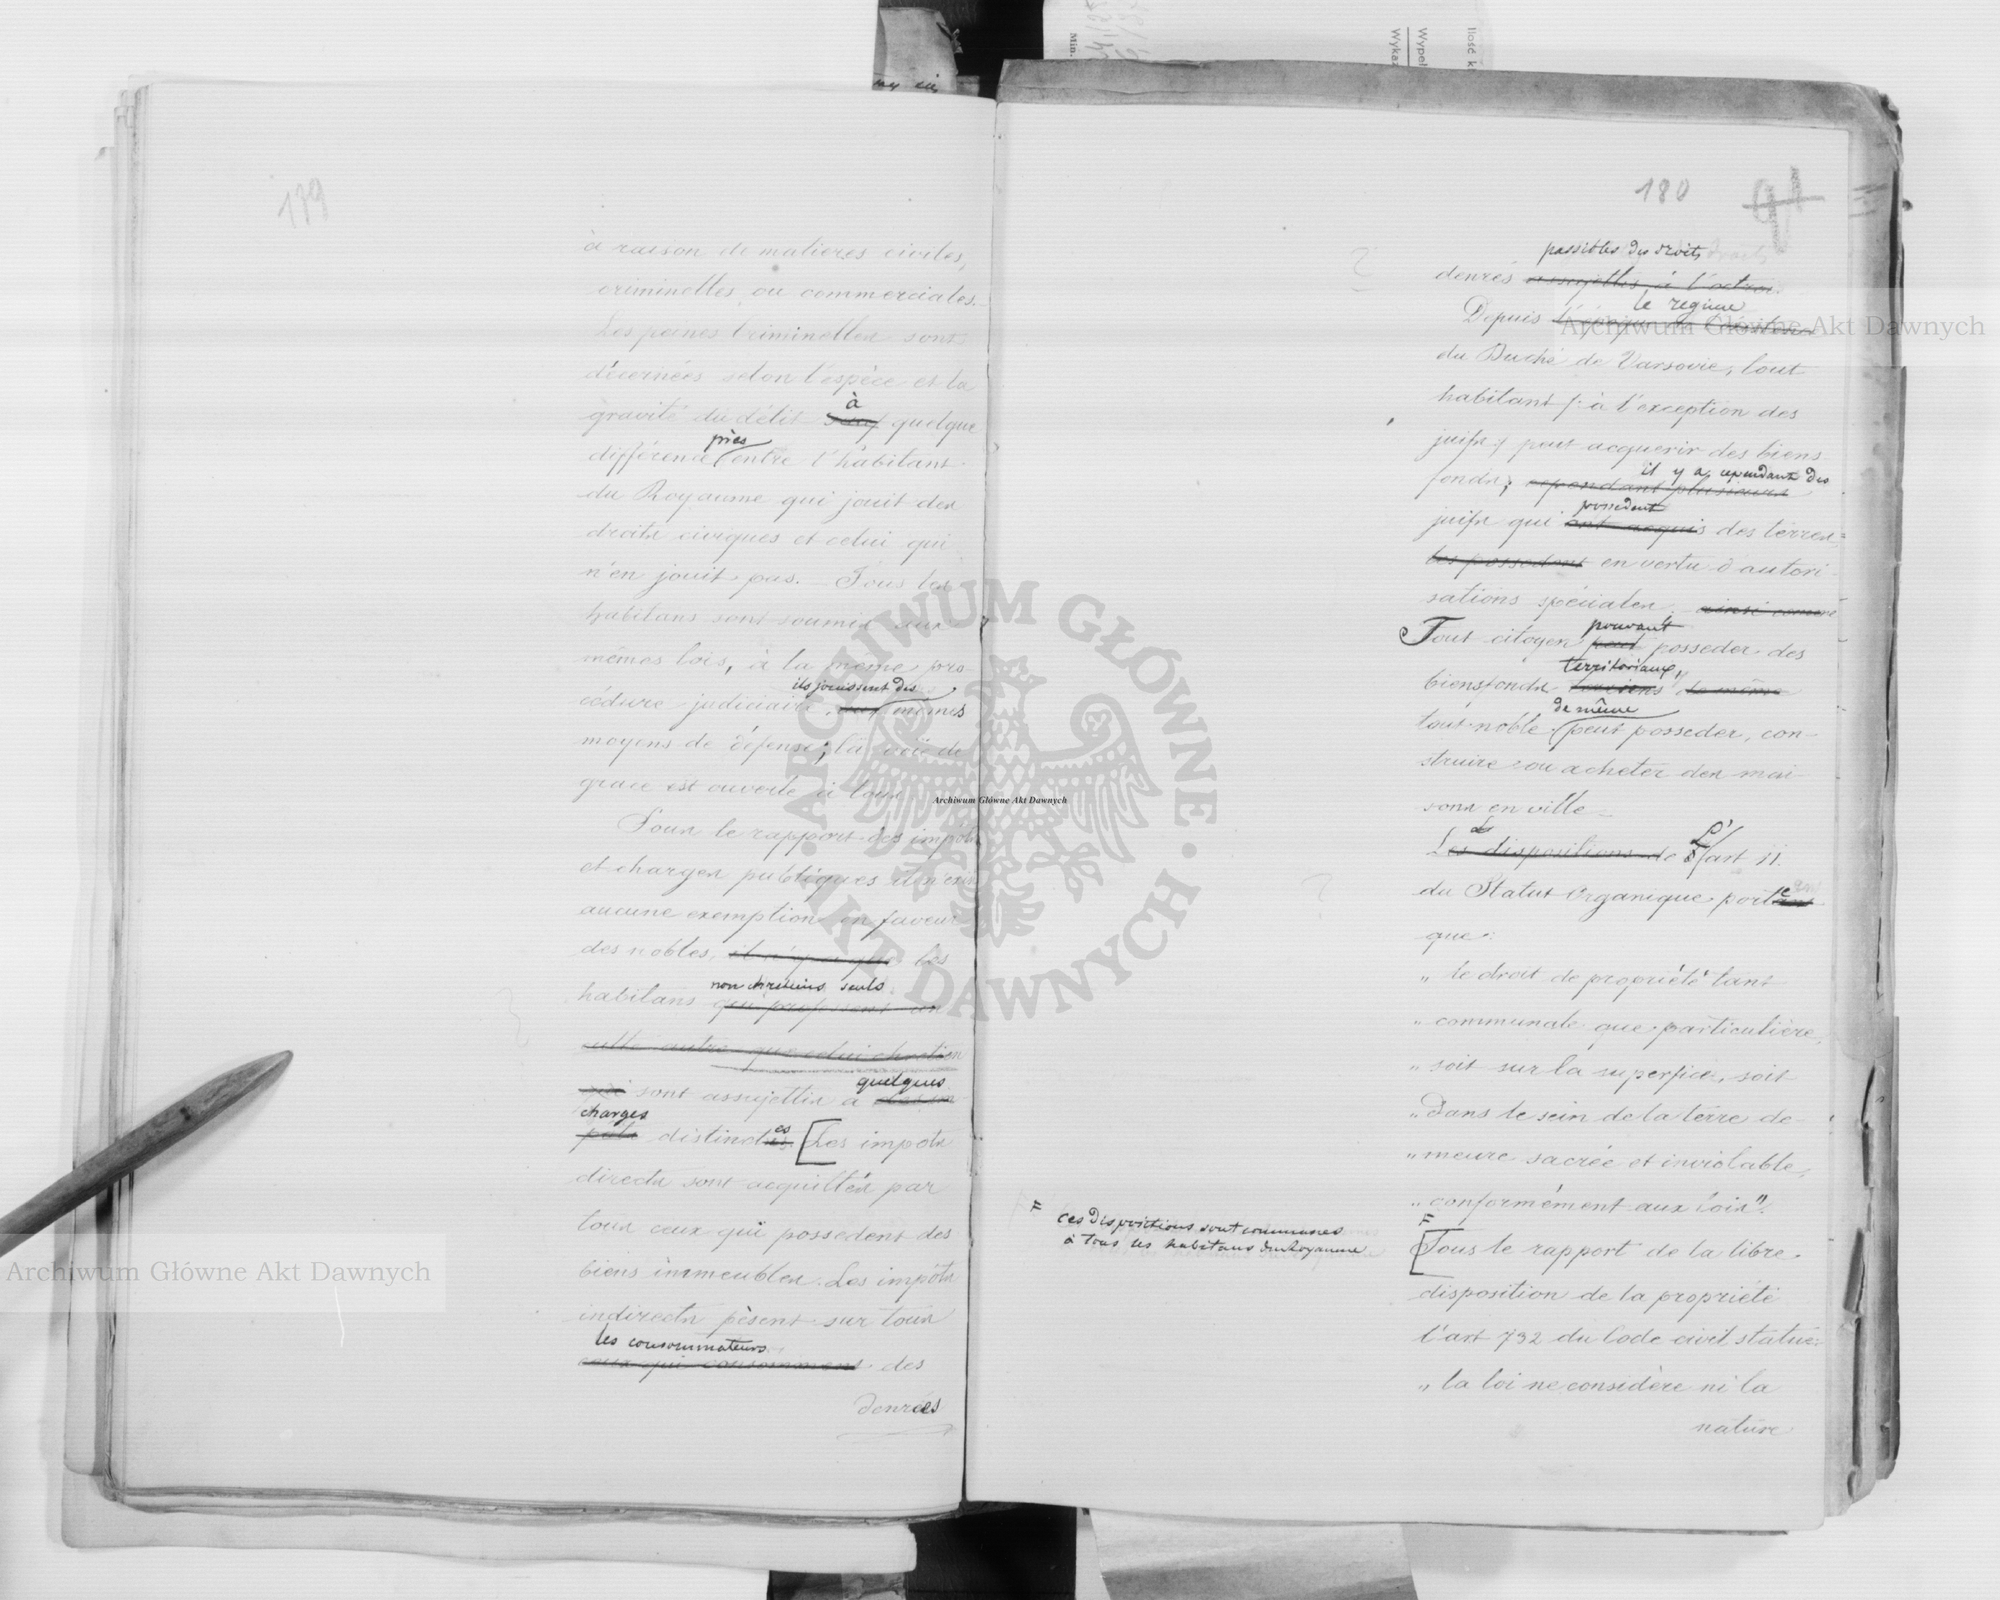 179
à raison de matieres civiles,
criminelles ou commerciales.
Les peines criminelles sont
décernées selon l'espèce et la
à
gravité du délit sauf quelque
près
différence entre l'habitant
du Royaume qui jouit des
droits civiques et celui qui
n'en jouit pas. Tous les
habitans sont soumis aux
mêmes lois, à la même pro
ils jouissent des
cédure judiciaire, aux mêmes
moyens de défense; la voie de
grace est ouverte à tous
Sous le rapport des impôts
et charges publiques il n'existe
aucune exemption en faveur
des nobles, il n'y a que les
non chrétiens seuls
habitans qui professent un
culte autre que celui chretien
qui sont assujettis à des im
quelques
charges
pôts distincts es [Les impôts
directs sont acquittés par
tous ceux qui possedent des
biens immeubles. Les impôts
indirects pèsent sur tous
les consommateurs
ceux qui consomment des
denrées
180
91
passibles des droits
denrés assujettis à l'octroi.
le régime
Depuis
du Duché de Varsovie, tout
habitant /: à l'exception des
juifs :/ peut acquerir des biens
il y a cependant des
fonds; cependant plusieurs
possedent
juifs qui ont acquis des terres
les possedent en vertu d'autori
sations spéciales. ainsi comme
pouvant
Tout citoyen peut posseder des
territoriaux
biensfonds de même
de même
tout noble peut posseder, con-
struire ou acheter des mai
sons en ville
L'
Les dispositions de l'art 11.
du Statut Organique porte
que:
" le droit de propriété tant
" communale que particulière,
" soit sur la superficie, soit
" dans le sein de la terre de-
" meure sacrée et inviolable,
" conformément aux lois".
F
[Sous le rapport de la libre
disposition de la propriété
l'art 732 du Code civil statue:
" la loi ne considère ni la
nature
F ces dispositions sont communes
à tous les habitans du Royaume
Archiwum Główne Akt Dawnych
Archiwum Główne Akt Dawnych
Archiwum Główne Akt Dawnych
ARCHIWUM GŁÓWNE AKT DAWNYCH
Ilość k
Wypeł
Wykaz
Min.